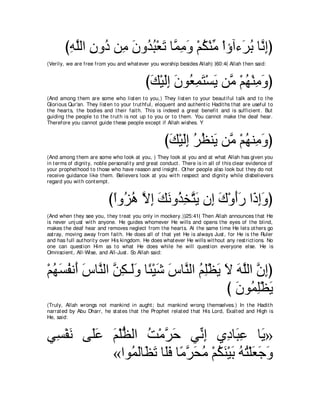 (إِنَّا بُرَءَآؤْاْ مِّنْكُمْ وَمِمَّا تَعْبُدُونَ مِن دُونِ اللَّهِ)
(Verily, we are free from you and whatever you worship besides Allah) (60:4) Allah then said:
(وَمِنْهُمْ مَّن يَسْتَمِعُونَ إِلَيْكَ)
(And among them are some who listen to you,) They listen to your beautiful talk and to the
Glorious Qur'an. They listen to your truthful, eloquent and authentic Hadiths that are useful to
the hearts, the bodies and their faith. This is indeed a great benefit and is sufficient. But
guiding the people to the truth is not up to you or to them. You cannot make the deaf hear.
Therefore you cannot guide these people except if Allah wishes. Y
(وَمِنهُمْ مَّن يَنظُرُ إِلَيْكَ)
(And among them are some who look at you, ) They look at you and at what Allah has given you
in terms of dignity, noble personality and great conduct. There is in all of this clear evidence of
your prophethood to those who have reason and insight. Other people also look but they do not
receive guidance like them. Believers look at you with respect and dignity while disbelievers
regard you with contempt.
(وَإِذَا رَأَوْكَ إِن يَتَّخِذُونَكَ إِلاَّ هُزُواً)
(And when they see you, they treat you only in mockery.)(25:41) Then Allah announces that He
is never unjust with anyone. He guides whomever He wills and opens the eyes of the blind,
makes the deaf hear and removes neglect from the hearts. At the same time He lets others go
astray, moving away from faith. He does all of that yet He is always Just, for He is the Ruler
and has full authority over His kingdom. He does whatever He wills without any restrictions. No
one can question Him as to what He does while he will question everyone else. He is
Omniscient, All-Wise, and All-Just. So Allah said:
(إِنَّ اللَّهَ لاَ يَظْلِمُ النَّاسَ شَيْئًا وَلَـكِنَّ النَّاسَ أَنفُسَهُمْ
يَظْلِمُونَ )
(Truly, Allah wrongs not mankind in aught; but mankind wrong themselves.) In the Hadith
narrated by Abu Dharr, he states that the Prophet related that His Lord, Exalted and High is
He, said:
«يَا عِبَادِي إِنِّي حَرَّمْتُ الظُّلْمَ عَلَى نَفْسِي
وَجَعَلْتُهُ بَيْنَكُمْ مُحَرَّمًا فَلَا تَظَالَمُوا»